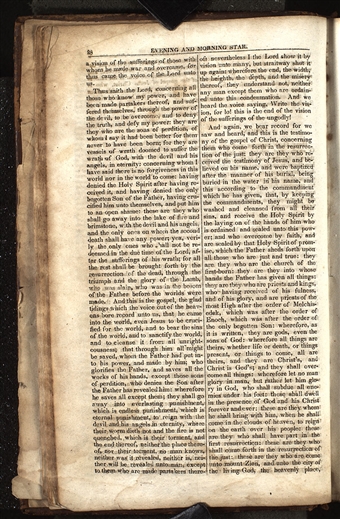 28
EVENING AND MORNING STAR.
a vision of the sufferings of those with
whom he made war and overcame, for
thus came the voice of the Lord unto
us.
Thus saith the Lord, concerning all
those who know my power, and have
been made partakers thereof, and suf-
fered themselves, through the power of
the devil, to be overcome, and to deny
the truth, and defy my power: they are
they who are the sons of perdition, of
whom I say it had been better for them
never to have been born; for they are
vessels of wrath doomed to suffer the
wrath of God, with the devil and his
angels, in eternity: concerning whom I
have said there is no forgiveness in this
world nor in the world to come: having
denied the Holy Spirit after having re-
ceived it, and having denied the only
begotten Son of the Father, having cru-
cified him unto themselves, and put him
to an open shame: these are they who
shall go away into the lake of fire and
brimstone, with the devil and his angels,
and the only ones on whom the second
death shall have any power; yea, ver-
ily, the only ones who shall not be re-
deemed in the due time of the Lord, af-
ter the sufferings of his wrath; for all
the rest shall be brought forth by the
resurrection of the dead, through the
triumph and the glory of the Lamb,
who was slain, who was in the bosom
of the Father before the worlds were
made. And this is the gospel, the glad
tidings which the voice out of the heav-
ens bore record unto us, that he came
into the world, even Jesus to be cruci-
fied for the world, and to bear the sins
of the world, and to sanctify the world,
and to cleanse it from all unright-
eousness; that through him all might
be saved, whom the Father had put in-
to his power, and made by him; who
glorifies the Father, and saves all the
works of his hands, except those sons
of perdition, who denies the Son after
the Father has revealed him: wherefore
he saves all except them; they shall go
away into everlasting punishment,
which is endless punishment, which is
eternal punishment, to reign with the
devil and his angels in eternity, where
their worm dieth not and the fire is not
quenched, which is their torment, and
the end thereof, neither the place there-
of, nor their torment, no man knows,
neither was it revealed, neither is, nei-
ther will be revealed unto man, except
to them who are made partakers there-
of: nevertheless I the Lord show it by
vision unto many, but straitway shut it
up again: wherefore the end, the width,
the heighth, the depth, and the misery
thereof, they understand not, neither
any man except them who are ordain-
ed unto this condemnation. And we
heard the voice saying, Write the vis-
ion, for lo! this is the end of the vision
of the sufferings of the ungodly!
And again, we bear record for we
saw and heard, and this is the testimo-
ny of the gospel of Christ, concerning
them who come forth in the resurrec-
tion of the just: they are they who re-
ceived the testimony of Jesus, and be-
lieved on his name, and were baptized
after the manner of his burial, being
buried in the water in his name, and
this according to the commandment
which he has given, that, by keeping
the commandments, they might be
washed and cleansed from all their
sins, and receive the Holy Spirit by
the laying on of the hands of him who
is ordained and sealed unto this pow-
er; and who overcome by faith, and
are sealed by that Holy Spirit of prom-
ise, which the Father sheds forth upon
all those who are just and true: they
are they who are the church of the
first-born: they are they into whose
hands the Father has given all things:
they are they who are priests and kings,
who having received of his fulness,
and of his glory, and are priests of the
most High after the order of Melchis-
edek, which was after the order of
Enoch, which was after the order of
the only begotten Son: wherefore, as
it is written, they are gods, even the
sons of God: wherefore all things are
theirs, whether life or death, or things
present, or things to come, all are
theirs, and they are Christ's, and
Christ is God's; and they shall over-
come all things: wherefore let no man
glory in man, but rather let him glo-
ry in God, who shall subdue all ene-
mies under his feet: these shall dwell
in the presence of God and his Christ
forever and ever: these are they whom
he shall bring with him, when he shall
come in the clouds of heaven, to reign
on the earth over his people: these
are they who shall have part in the
first resurrection: these are they who
shall come forth in the resurrection of
the just: these are they who are come
unto mount Zion, and unto the city of
the living God, the heavenly place,